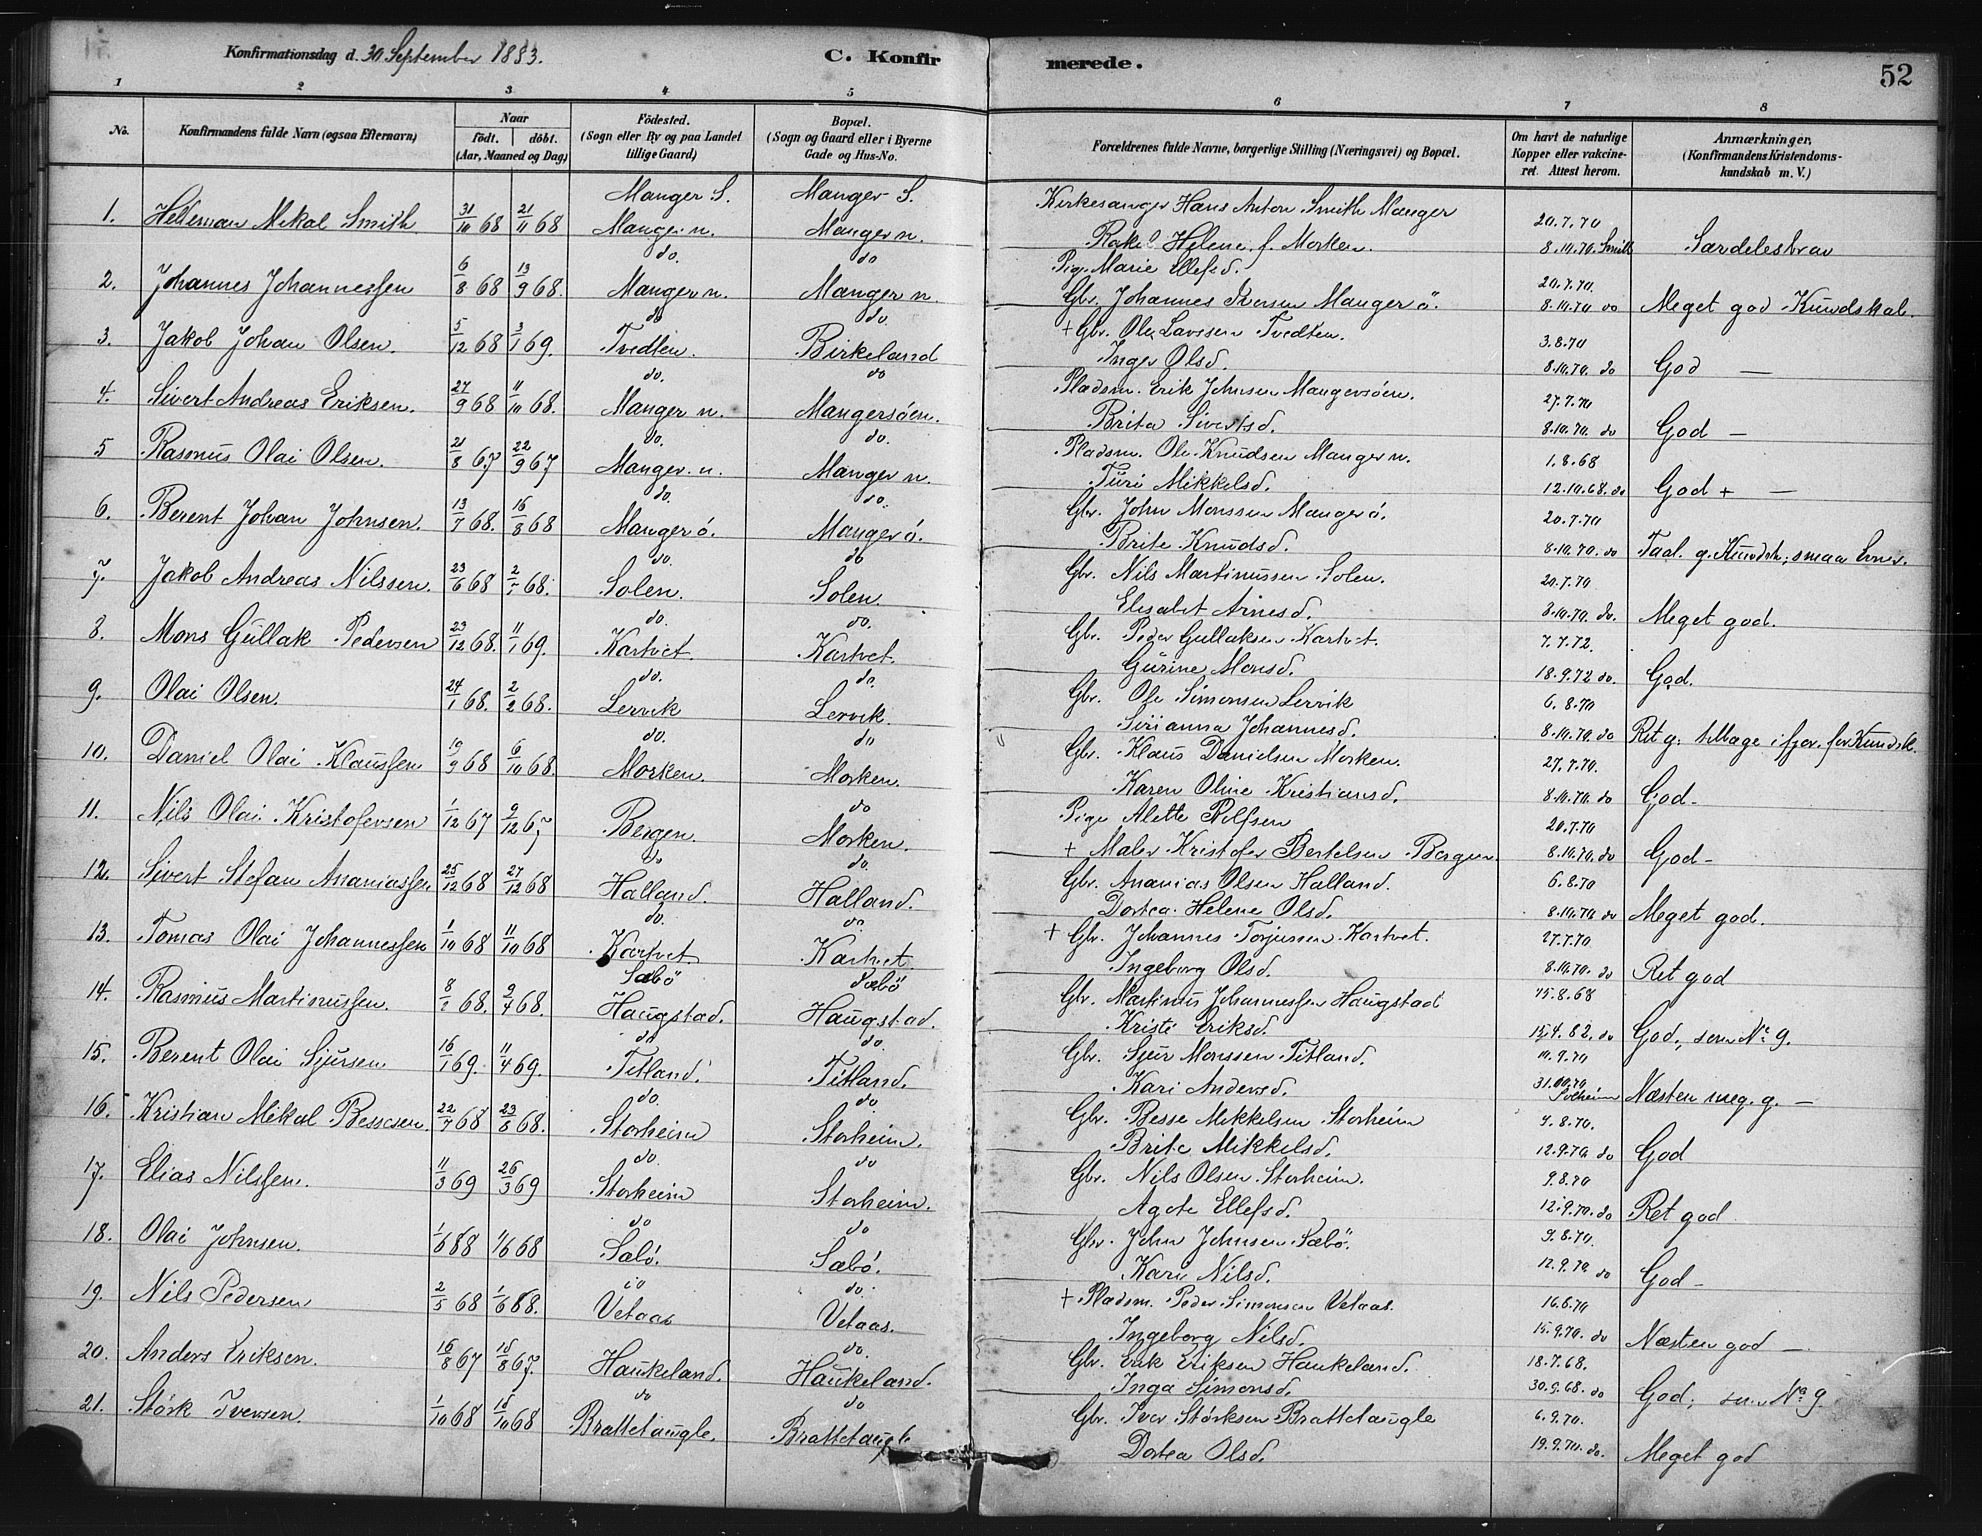 Konfirmationsdag d. 30 September 1883. C. Konfirmerede. 52
1 2 3 4 5 6 7 8
No. Konfirmandens fulde Navn (ogsaa Efternavn) Naar født. døbt. (Aar, Maaned og Dag) Fødested. (Sogn eller By og paa Landet tillige Gaard) Bopæl. (Sogn og Gaard eller i Byerne Gade og Hus-No. Forældrenes fulde Navne, borgerlige Stilling (Næringsvei) og Bopæl. Om havt de naturlige Kopper eller vakcineret. Attest herom. Anmærkninger, (Konfirmandens Kristendomskundskab m. V.)
Manger S. Manger S. Kirkesanger Hans Anton Smith Manger 20.7.70
1. Mikal Smith 31/10 68 21/11 68 Manger n. Manger n. Rakel Helene f. Morken. 8.10.70 Smith Særdeles brav
do. do Pige Marie Ellefsd. 20.7.70.
2. Johannes Johannessen 6/8 68 13/9 68. Manger n. Manger n. Gbr. Johannes Iversen Manger ö. 8.10.70 do Meget god Kundskab.
do do + Gbr. Ole Larssen Tvedten. 3.8.70
3. Jakob Johan Olsen. 5/12 68 3/1 69. Tvedten. Birkeland Inger Olsd. 8.10.70. do God —
do. do Pladsm. Erik Johnsen Mangersøen. 27.7.70
4. Sivert Andreas Eriksen. 27/9 68 11/10 68. Manger n. Mangersöen. Brita Sivertsd. 8.10.70. do God —
do. do. Pladsm. Ole Knudsen Manger n. 1.8.68
5 Rasmus Olai Olsen. 21/8 67 22/9 67 Manger n. Manger n. Turi Mikkelsd. 12.10.68. do God + —
do. do. Gbr. John Monssen Manger ö. 20.7.70
6. Berent Johan Johnsen. 13/7 68. 16/8 68 Manger ö. Manger ö. Brite Knudsd. 8.10.70. do Taal. g. Kundsk; smaa Evner.
do. do Gbr. Nils Martinussen Solen. 20.7.70
7. Jakob Andreas Nilssen. 23/6 68 68. Solen. Solen. Elisabet Arnesd. 8.10.70. do. Meget god.
do. do. Gbr. Peder Gullaksen Kartvet. 7.7.72.
8. Mons Gullak Pedersen 23/12 68. 11/1 69. Kartvet. Kartvet. Gurine Monsd. 18.9.72 do. God.
do. do. Gbr. Ole Simonsen Lervik 6.8.70
9. Olai Olsen. 24/1 68. 2/2 68. Lervik Lervik. Sirianna Johannesd. 8.10.70. do Ret g. tilbage ifjor for Kundsk.
do. do Gbr. Klaus Danielsen Morken. 27.7.70.
10. Daniel Olai Klaussen 19/9 68 6/10 68. Morken. Morken. Karen Oline Kristiansd. 8.10.70. do God.
do Pige Alette Rolfsen 20.7.70
11. Nils Olai Kristofersen 1/12 67 9/12 67 Bergen. Morken. + Maler Kristofer Bertelsen Bergen. 8.10.70. do God—
do do. Gbr. Ananias Olsen Halland. 6.8.70
12. Sivert Stefan Ananiassen 25/12 68 27/12 68 Halland. Halland. Dortea Helene Olsd. 8.10.70 do Meget god.
do. do. + Gbr. Johannes Torjussen Kartvet. 27.7.70
13. Tomas Olai Johannessen 1/10 68 11/10 68 Kartvet Kartvet. Ingeborg Olsd. 8.10.70. do Ret god
Sæbö Sæbö Gbr. Martinus Johannessen Haugstad 15.8.68
14. Rasmus Martinussen. 68. 2/4 68. Haugstad. Haugstad. Kristi Eriksd. 15.4.82. do God, som No 9.
do do. Gbr. Sjur Monssen Titland. 10.9.70
15. Berent Olai Sjursen 16/1 69. 11/4 69. Titland. Titland. Kari Andersd. 31.10.70 Solheim Næsten meg. g. —
do. do. Gbr. Besse Mikkelsen Storheim 4.8.70.
16. Kristian Mikal Bessesen. 22/7 68 23/8 68. Storheim Storheim. Brite Mikkelsd. 12.9.70 do God
do. do Gbr. Nils Olsen Storheim. 9.8.70
17. Elias Nilssen. 11/3 69 26/3 69 Storheim Storheim. Agote Ellefsd. 12.9.70. do Ret god
do do Gbr. John Johnsen Sæbö. 9.8.70.
18. Olai Johnsen. 1/6 68 1/6 68 Sæbö. Sæbö. Kari Nilsd. 12.9.70 do God—
do do. + Pladsm. Peder Simonsen Vetaas. 16.8.70
19. Nils Pedersen 2/5 68 1/6 68. Vetaas Vetaas. Ingeborg Nilsd. 15.9.70. do Næsten god —
do. Gbr. Erik Eriksen Haukeland. 18.7.68.
20. Anders Eriksen. 16/8 67 18/8 67. Haukeland. Haukeland. Inga Simonsd. 30.9.68. do God; som No 9
do do Gbr. Iver Størksen Brattetaugle 6.9.70.
21. Størk Iversen. 1/10 68 18/10 68 Brattetaugle. Brattetaugle Dortea Olsd. 19.9.70. do. Meget god